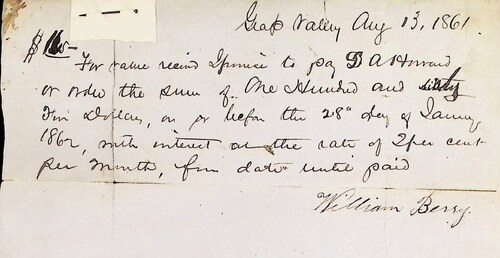 Grass Valley Aug 13, 1861.
$165-
For value receivd I promice to pay D A Howard
or order the sum of One Hundred and sixty
Five Dollars, on or before the 28" day of January
1862, with interest at the rate of 2 per cent
per month, from date until paid
William Berry.